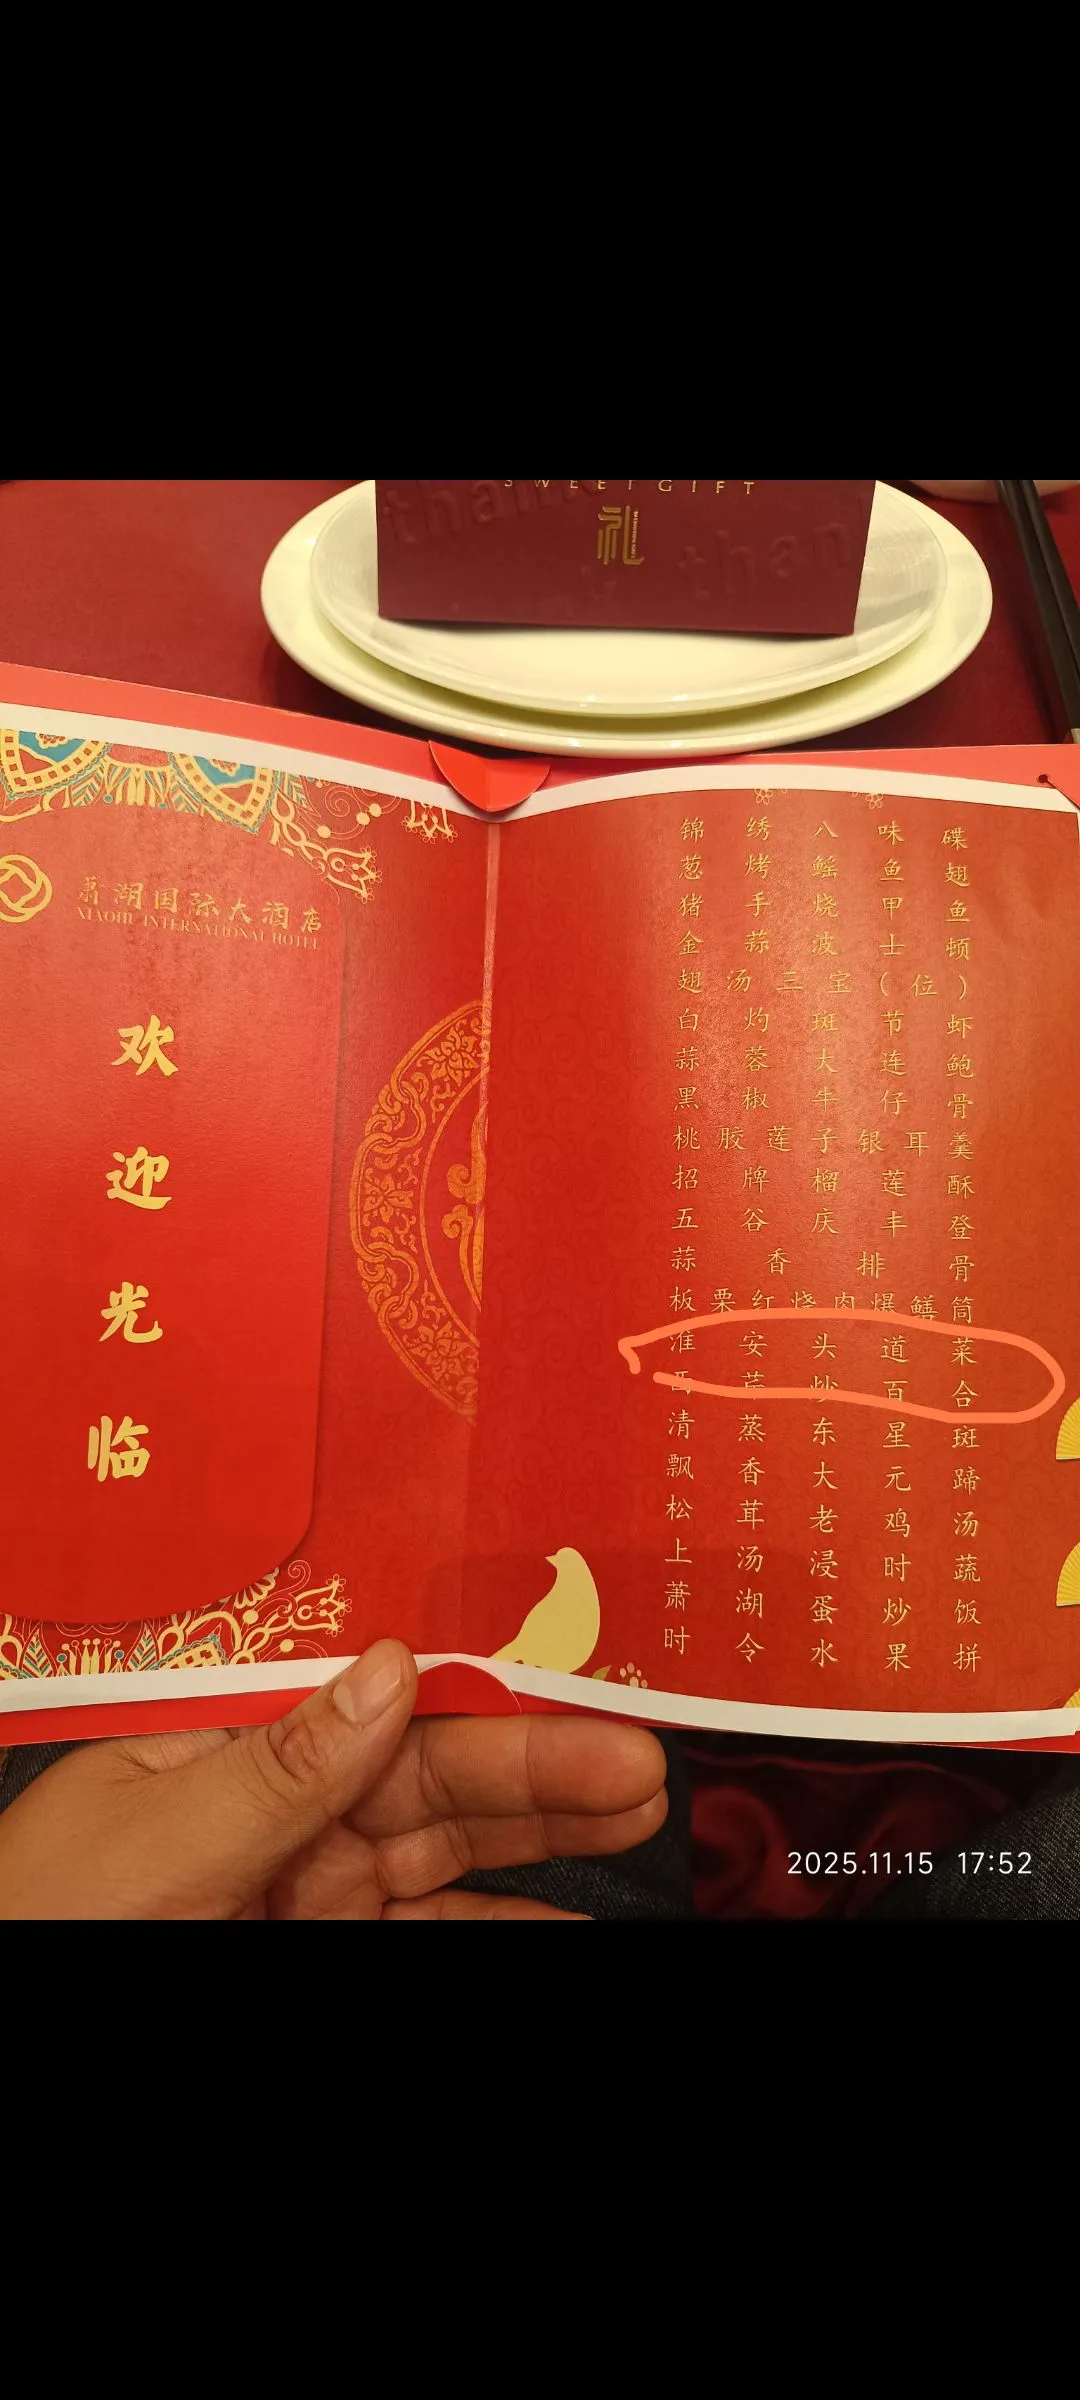 SWEETGIFT
礼
萧湖国际大酒店
XIAOHU INTERNATIONAL HOTEL
欢
迎
光
临
锦绣八味碟
葱烤鳐鱼翅
猪手烧甲鱼
金蒜波士顿
翅汤三宝(位)
白灼斑节虾
蒜蓉大连鲍
黑椒牛仔骨
桃胶莲子银耳羹
招牌榴莲酥
五谷庆丰登
蒜香排骨
板栗红烧肉爆鳝筒
淮安头道菜
西芹炒百合
清蒸东星斑
飘香大元蹄
松茸老鸡汤
上汤浸时蔬
萧湖蛋炒饭
时令水果拼
2025.11.15 17:52